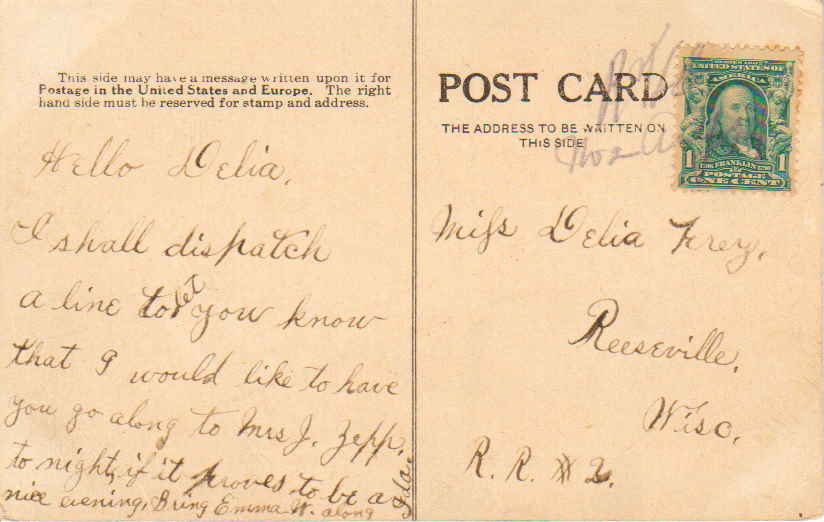 This side may have a message written upon it for
Postage in the United States and Europe. The right
hand side must be reserved for stamp and address.
Hello Delia,
I shall dispatch
a line to let you know
that I would like to have
you go along to Mrs J. Zepp,
to night, if it proves to be a
nice evening, Bring Emma W. along
Ida.
POST CARD
THE ADDRESS TO BE WRITTEN ON
THIS SIDE
UNITED STATES OF
AMERICA
1 FRANKLIN 1
POSTAGE
ONE CENT
Miss Delia Frey,
Reeseville,
Wisc,
R. R. # 2.